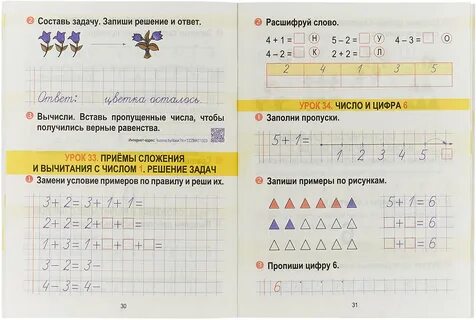 2 Составь задачу. Запиши решение и ответ.
Ответ: цветка осталось.
3 Вычисли. Вставь пропущенные числа, чтобы
получились верные равенства.
УРОК 33. ПРИЁМЫ СЛОЖЕНИЯ
И ВЫЧИТАНИЯ С ЧИСЛОМ 1. РЕШЕНИЕ ЗАДАЧ
1 Замени условие примеров по правилу и реши их.
3+2=3+1+1=
2+2=2+□+□=
1+3=1+□+□+□=
3-2=3-
4-3=4-
30
2 Расшифруй слово.
4+1=□ Н 5-2=□ У 4-3=□ О
4-2=□ К 2+2=□ Л
2 4 1 3 5
УРОК 34. ЧИСЛО И ЦИФРА 6
1 Заполни пропуски.
5+1=
1 2 3 4 5
2 Запиши примеры по рисункам.
5+1=6
□+□=6
□+□=6
3 Пропиши цифру 6.
6
31